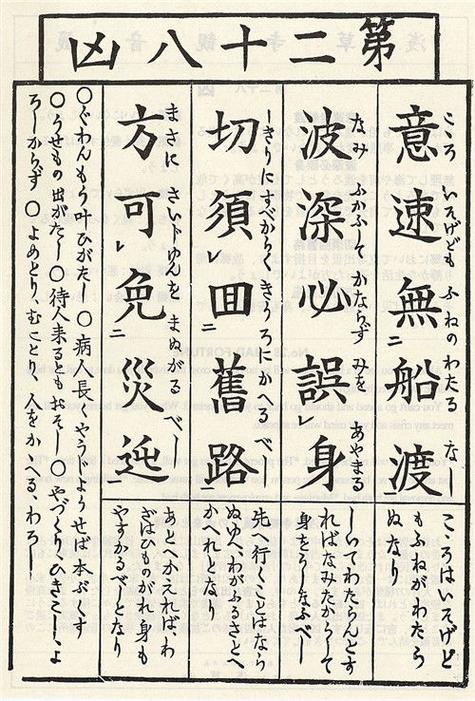 第二十八凶
こころ いそげども ふねのわたる な
意速無二船渡一
こゝろはいそげど
もふねがわたら
ぬなり
なみ ふかふして かならず みを あやまる
波深必誤レ身
しいてわたらんとす
ればなみたかうして
身をうしなふべし
しきりにすべからく きうろにかへるべし
切須レ回二舊路一
先へ行くことはなら
ぬゆへ、わがふるさとへ
かへれとなり
まさに さいじゆんを まぬがるべし
方可レ免二災迍一
あとへかえれば、わ
ざはひものがれ身も
やすかるべしとなり
○ぐわんもう叶ひがたし ○病人長し、やうじようせば本ぶくす
○うせもの出がたし ○待人来るともおそし ○やづくりひきこし、よ
ろしからず ○よめとり、むことり、人をかゝへる、わろし